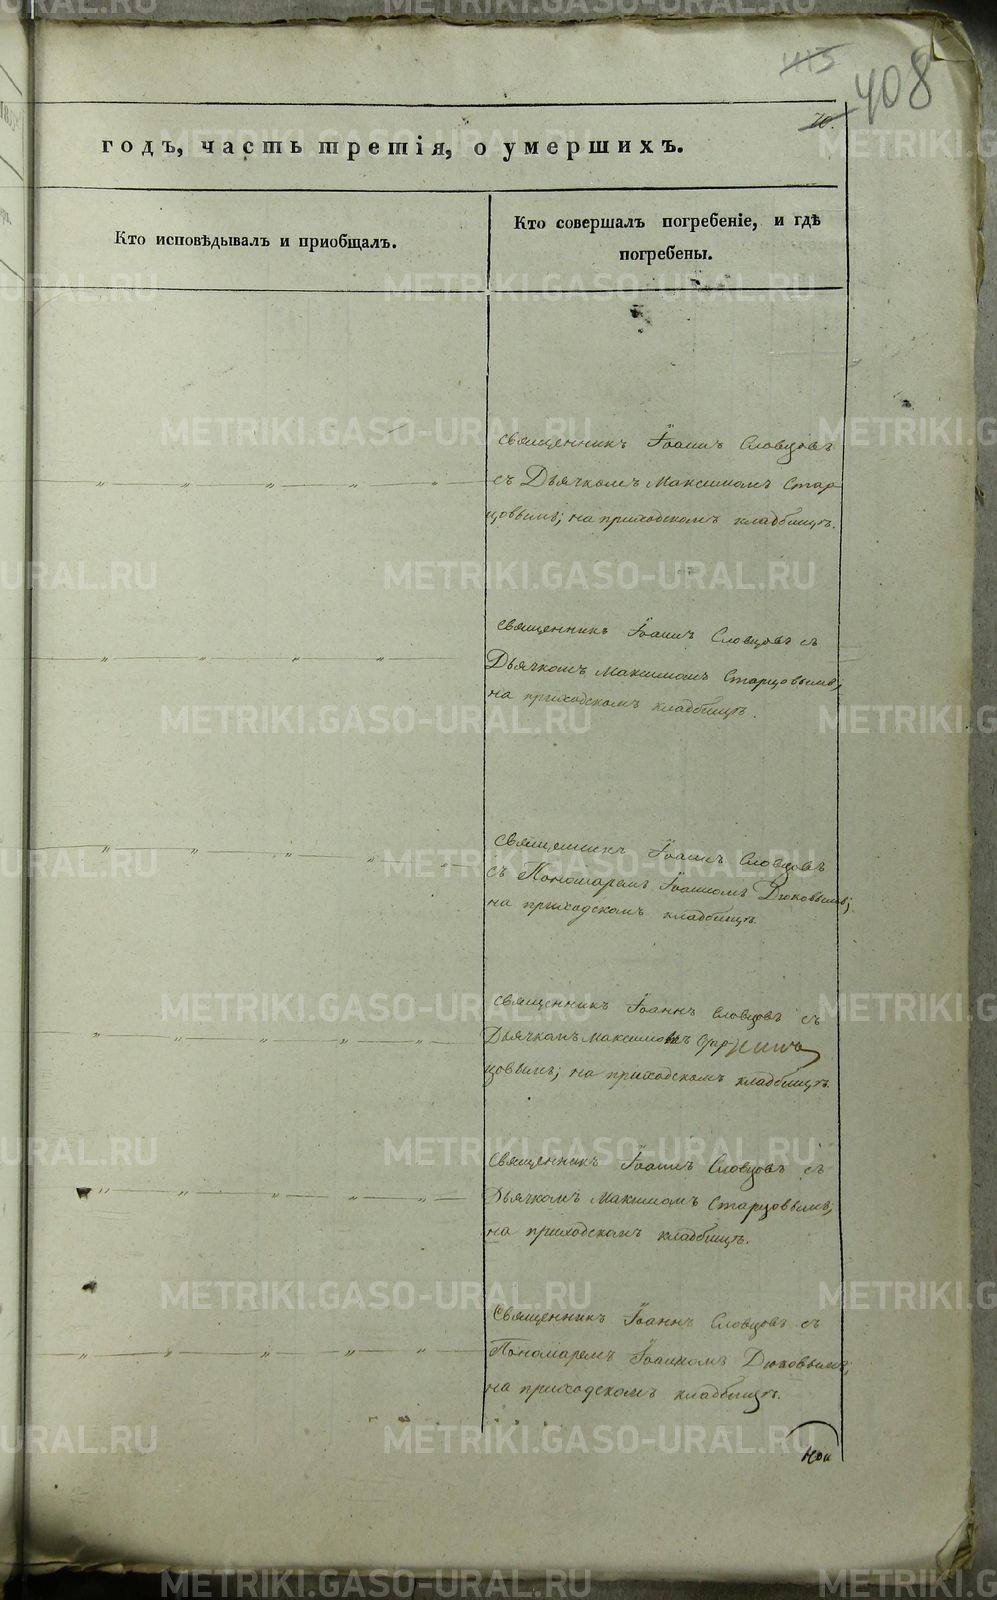 415
408
70.
годъ, часть третія, о умершихъ.
Кто исповѣдывалъ и пріобщалъ.
Кто совершалъ погребеніе, и гдѣ
погребены.
священникъ Іоаннъ Словцовъ
съ Дьячкомъ Максимомъ Стар-
цовымъ; на приходскомъ кладбищѣ.
священникъ Іоаннъ Словцовъ съ
Дьячкомъ Максимомъ Старцовымъ;
на приходскомъ кладбищѣ.
священникъ Іоаннъ Словцовъ
съ Пономаремъ Іоанномъ Дюковымъ;
на приходскомъ кладбищѣ.
священникъ Іоаннъ Словцовъ съ
Дьячкомъ Максимомъ Стар-
цовымъ; на приходскомъ кладбищѣ.
Священникъ Іоаннъ Словцовъ съ
Дьячкомъ Максимомъ Старцовымъ,
на приходскомъ кладбищѣ.
Священникъ Іоаннъ Словцовъ съ
Пономаремъ Іоанномъ Дюковымъ;
на приходскомъ кладбищѣ.
METRIKI.GASO-URAL.RU